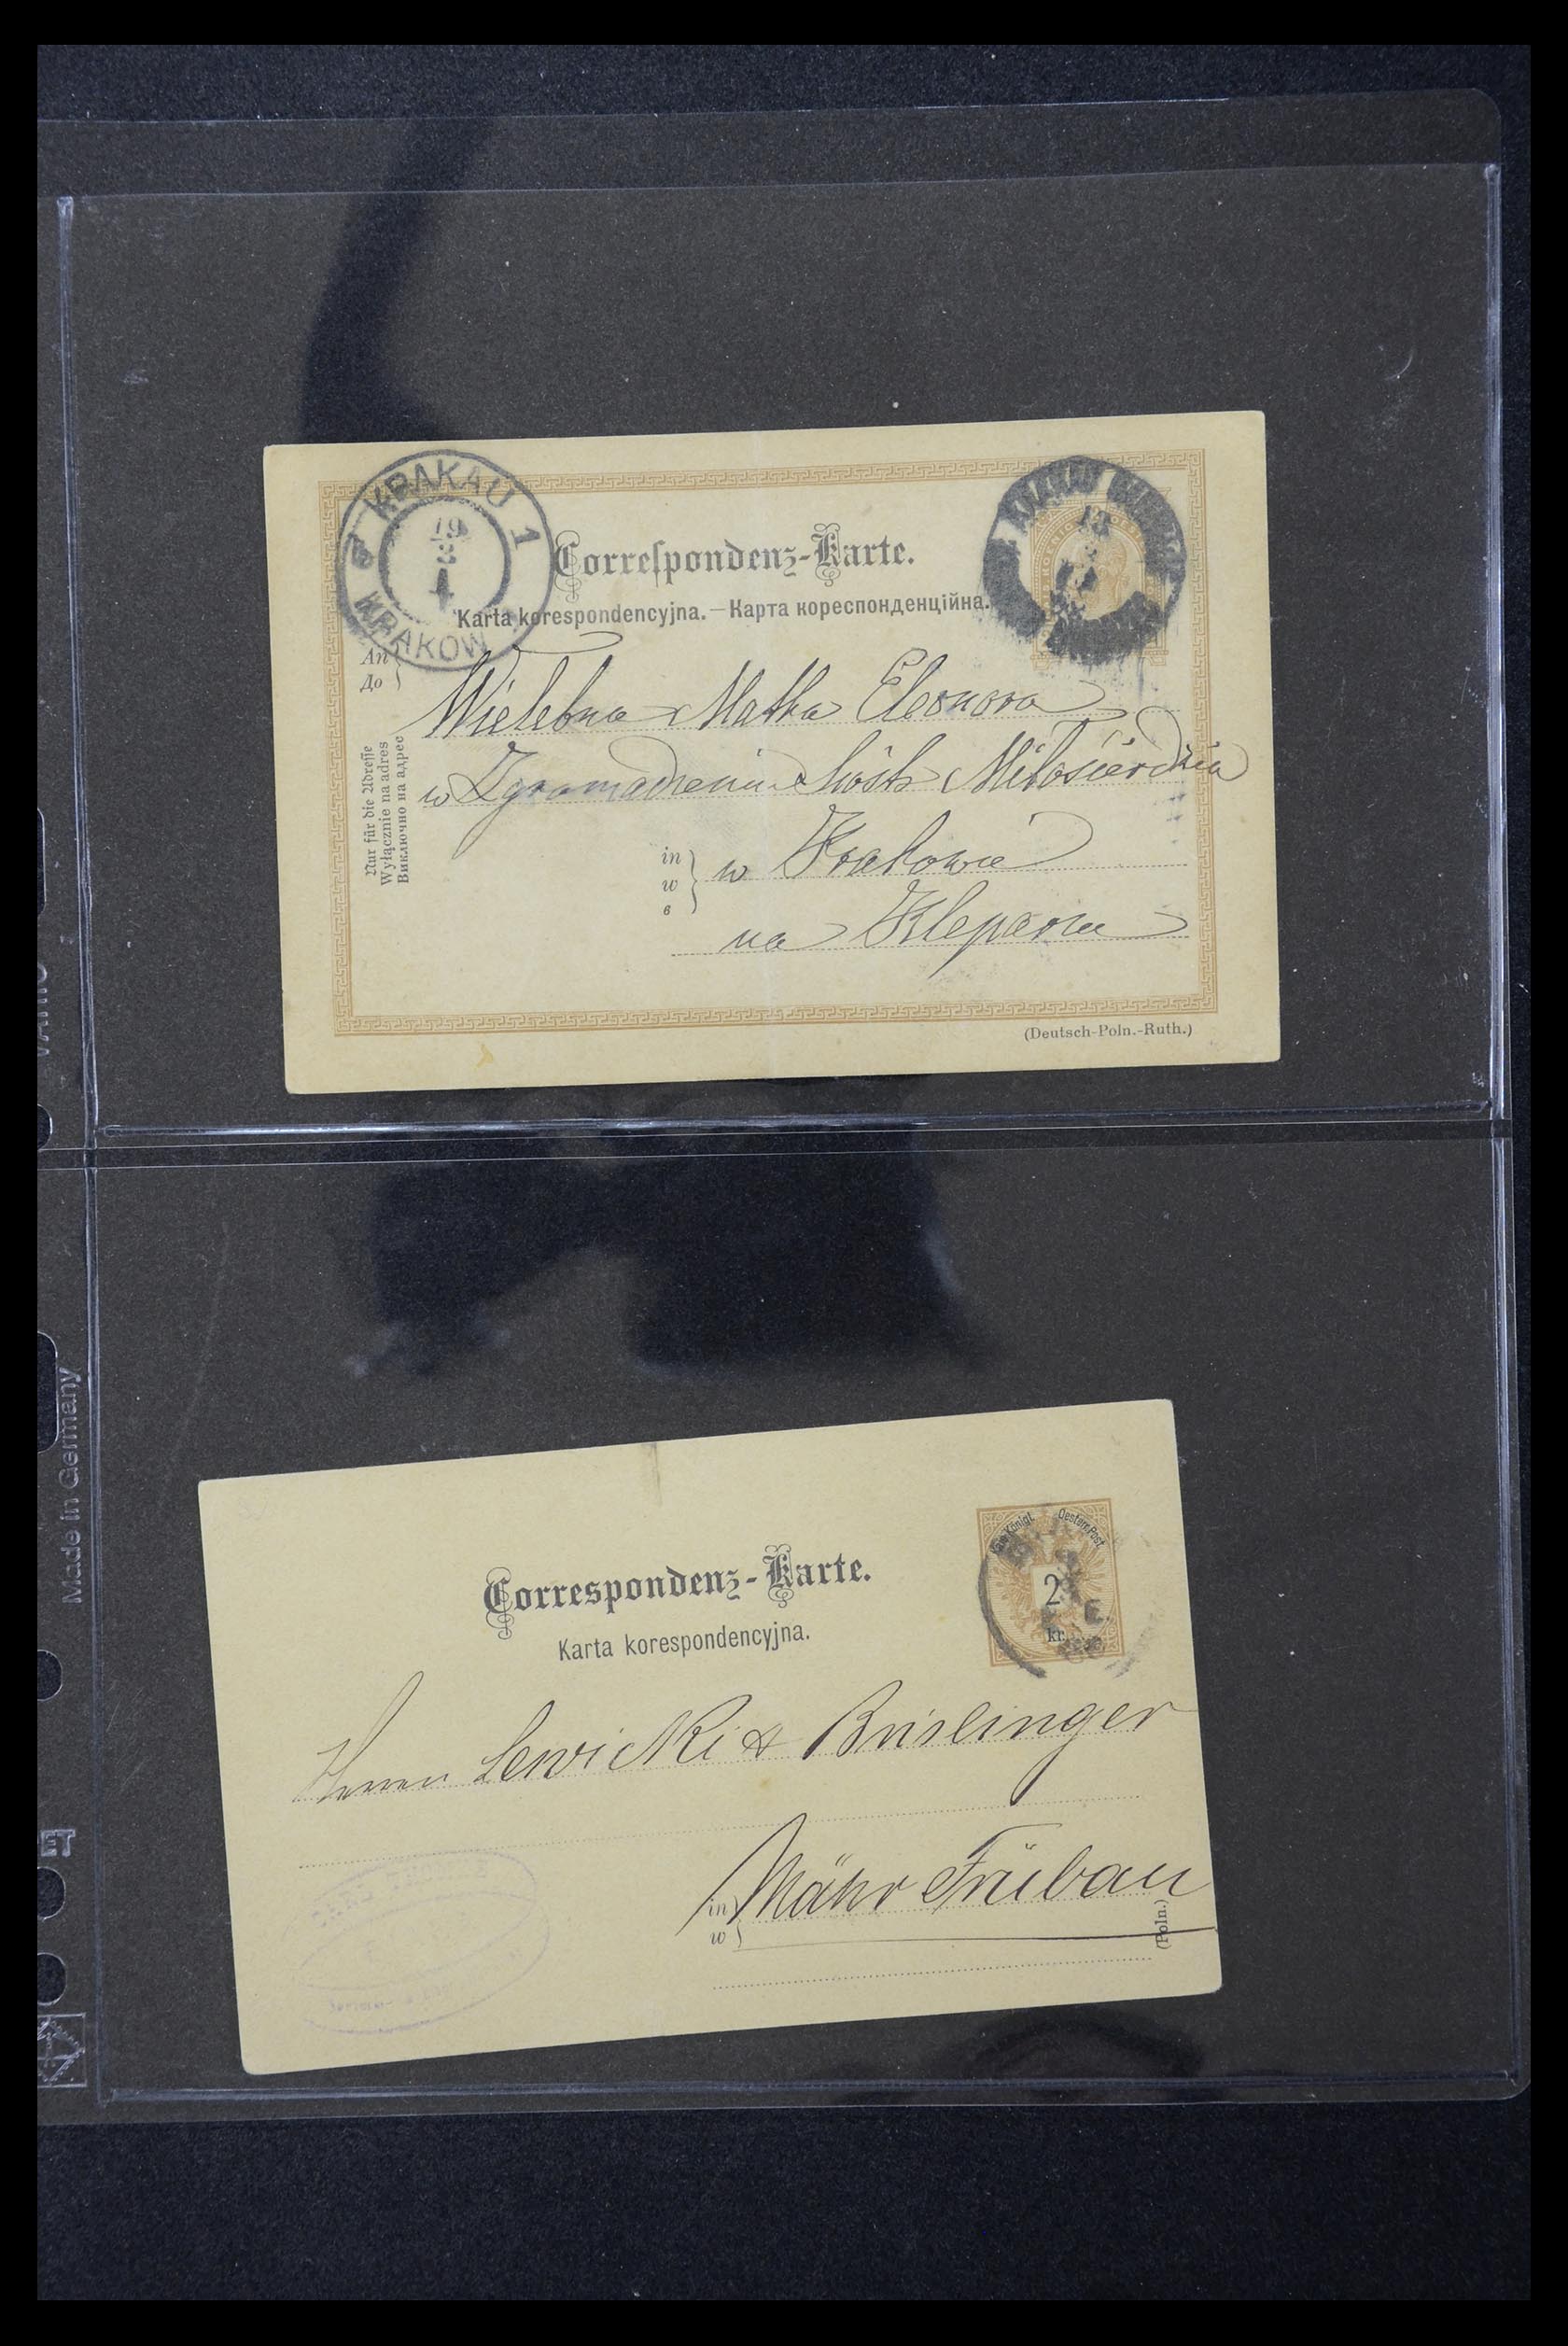 KRAKAU 1
19
3
KRAKOW
13
Correſpondenz-Karte.
Karta korespondencyjna.—Карта кореспонденційна.
An
До
Wielebna Matka Eleonora
w Zgromadzeniu Sióstr Miłosierdzia
in
w
в
w Krakowie
na Kleparzu
Nur für die Adreſſe
Wyłącznie na adres
Виключно на адрес
(Deutsch-Poln.-Ruth.)
Made in Germany
ET
Königl. Oesterr. Post
2
kr.
Correspondenz-Karte.
Karta korespondencyjna.
Herren Lewicki & Brislinger
in
w
Mähr Trübau
(Poln.)